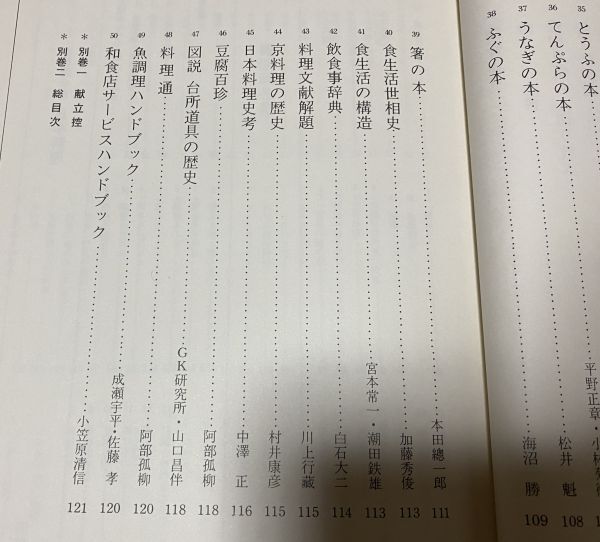 35 とうふの本 平野正章・小林
36 てんぷらの本 松井 魁 108
37 うなぎの本 海沼 勝 109
38 ふぐの本
39 箸の本 本田總一郎 111
40 食生活世相史 加藤秀俊 113
41 食生活の構造 宮本常一・潮田鉄雄 113
42 飲食事辞典 白石大二 114
43 料理文献解題 川上行蔵 115
44 京料理の歴史 村井康彦 115
45 日本料理史考 中澤 正 116
46 豆腐百珍 阿部孤柳 118
47 図説 台所道具の歴史 GK研究所・山口昌伴 118
48 料理通 阿部孤柳 120
49 魚調理ハンドブック 成瀬宇平・佐藤 孝 120
50 和食店サービスハンドブック 小笠原清信 121
* 別巻一 献立控
* 別巻二 総目次